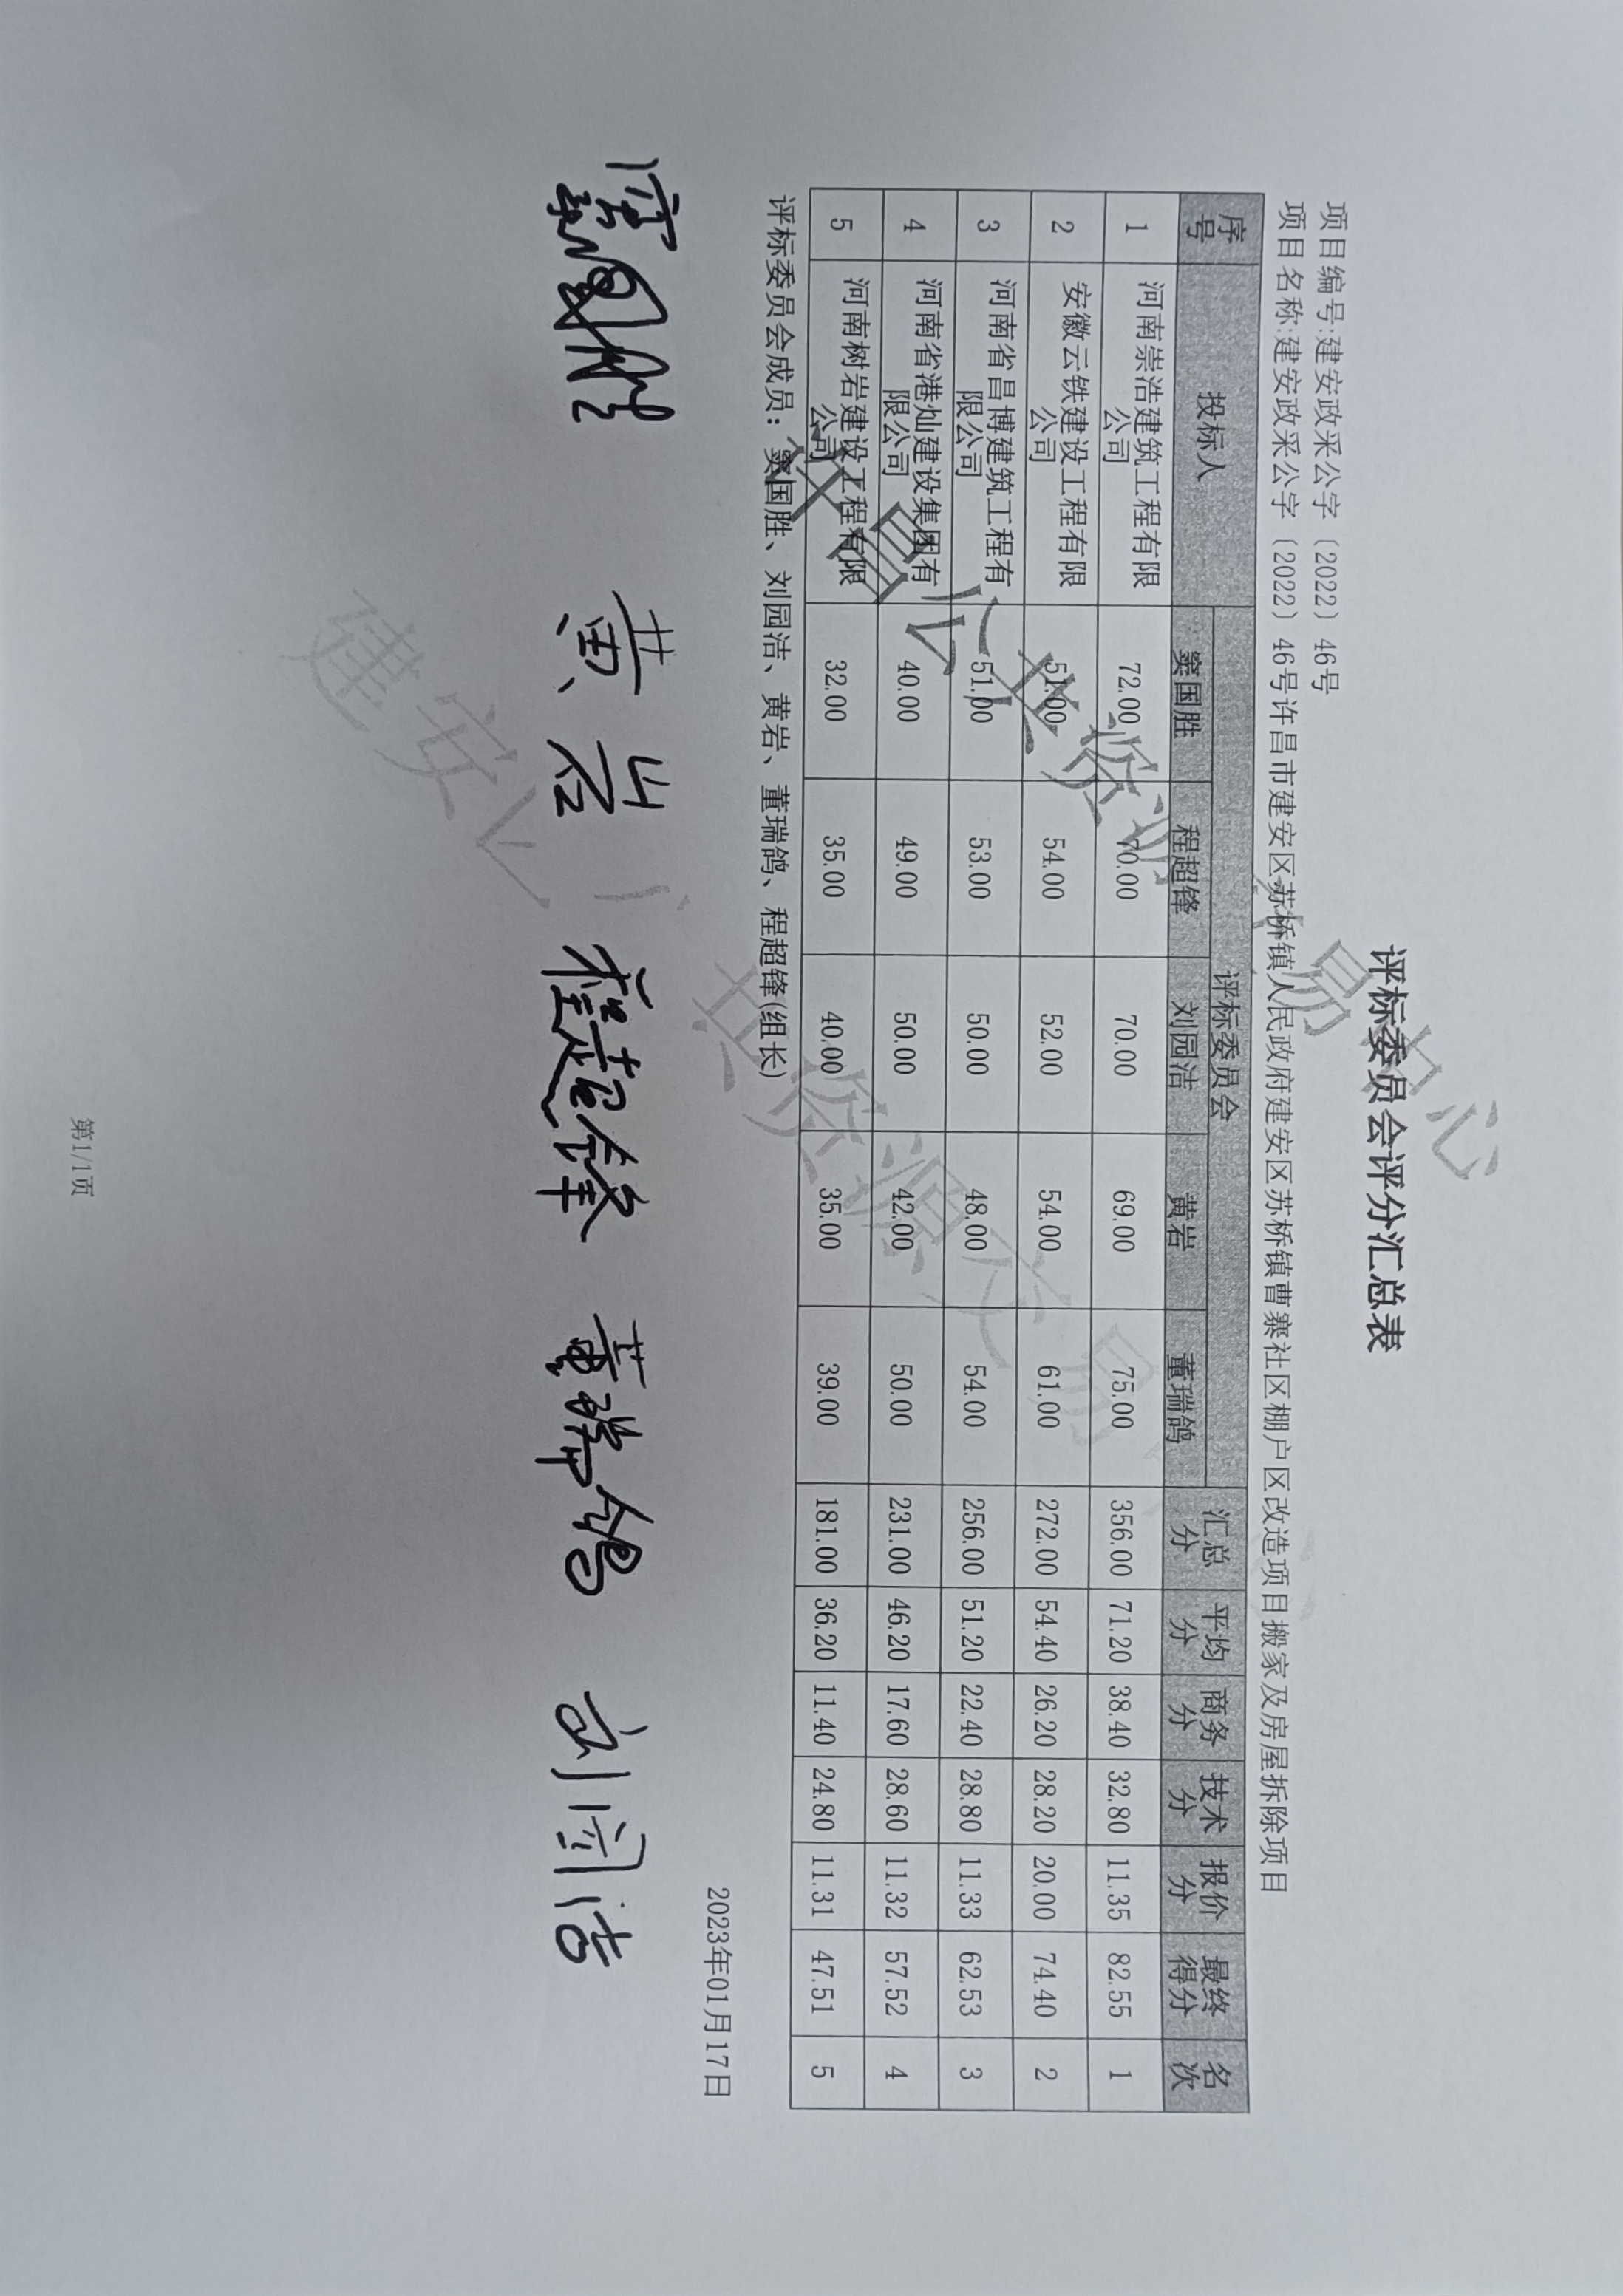 评标委员会评分汇总表
项目编号:建安政采公字〔2022〕46号
项目名称:建安政采公字〔2022〕46号许昌市建安区苏桥镇人民政府建安区苏桥镇曹寨社区棚户区改造项目搬家及房屋拆除项目
序号 投标人 评标委员会 汇总分 平均分 商务分 技术分 报价分 最终得分 名次
窦国胜 程超锋 刘园洁 黄岩 董瑞鸽
1 河南崇浩建筑工程有限公司 72.00 70.00 70.00 69.00 75.00 356.00 71.20 38.40 32.80 11.35 82.55 1
2 安徽云铁建设工程有限公司 51.00 54.00 52.00 54.00 61.00 272.00 54.40 26.20 28.20 20.00 74.40 2
3 河南省昌博建筑工程有限公司 51.00 53.00 50.00 48.00 54.00 256.00 51.20 22.40 28.80 11.33 62.53 3
4 河南省港灿建设集团有限公司 40.00 49.00 50.00 42.00 50.00 231.00 46.20 17.60 28.60 11.32 57.52 4
5 河南树岩建设工程有限公司 32.00 35.00 40.00 35.00 39.00 181.00 36.20 11.40 24.80 11.31 47.51 5
评标委员会成员：窦国胜、刘园洁、黄岩、董瑞鸽、程超锋(组长)
2023年01月17日
窦国胜 黄岩 程超锋 董瑞鸽 刘园洁
第1/1页
许昌公共资源交易中心
建安公共资源交易